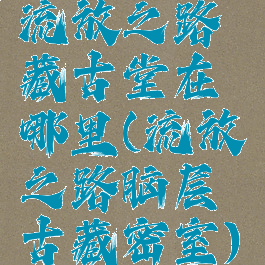 流放之路
藏古堂在
哪里(流放
之路脑层
古藏密室)